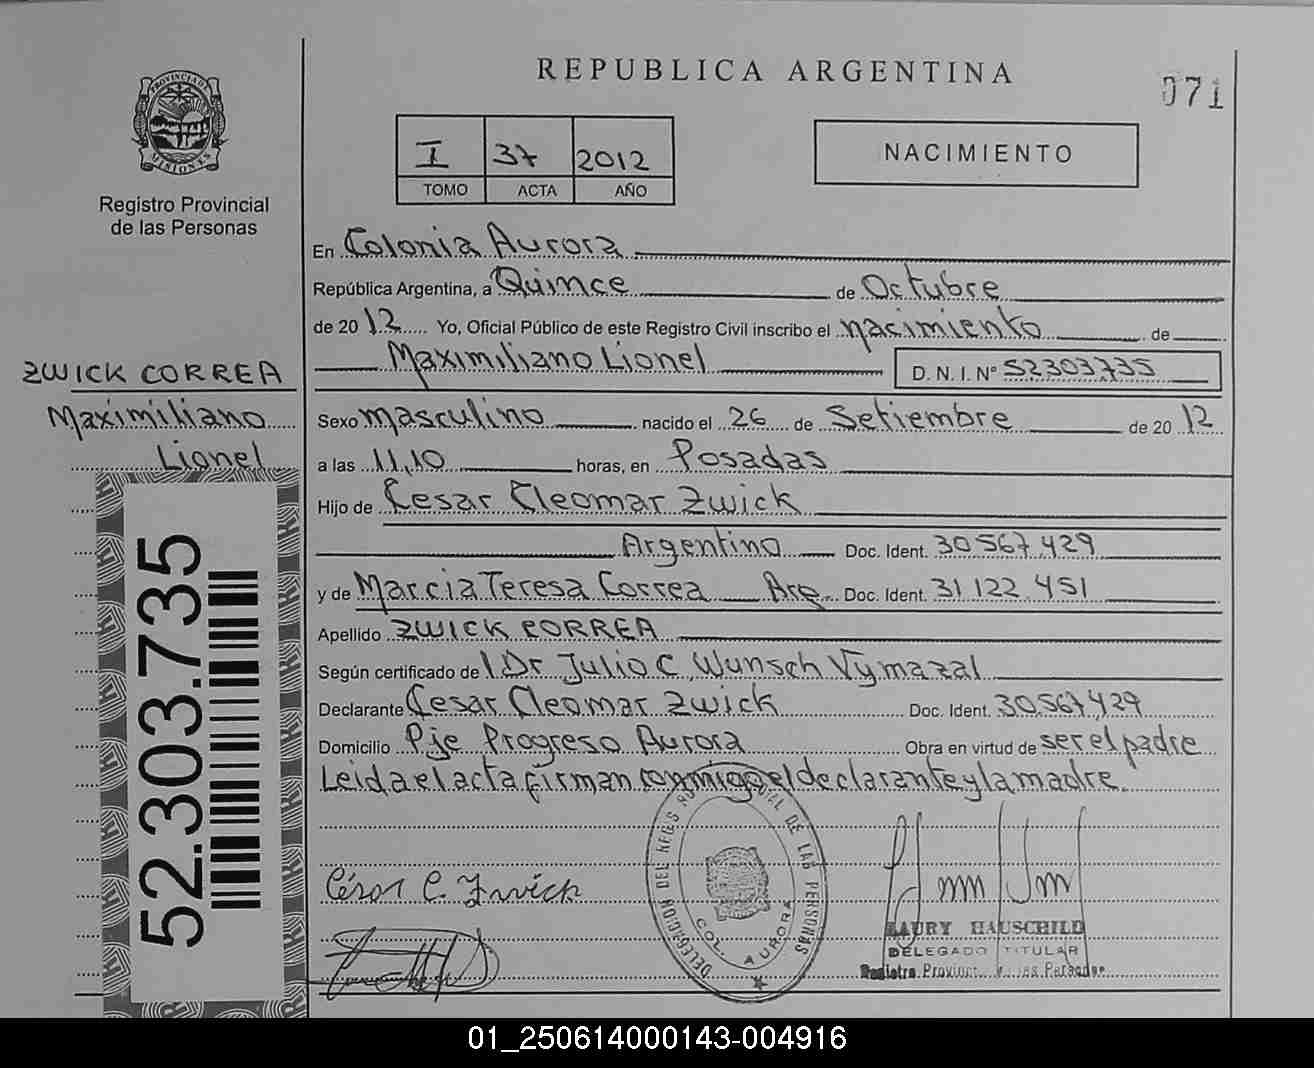 REPUBLICA ARGENTINA
071
PROVINCIA DE MISIONES
Registro Provincial
de las Personas
I 37 2012
TOMO ACTA AÑO
NACIMIENTO
En Colonia Aurora
República Argentina, a Quince de Octubre
de 2012 Yo, Oficial Público de este Registro Civil inscribo el nacimiento de
Maximiliano Lionel D. N. I. Nº 52303735
ZWICK CORREA
Maximiliano
Lionel
Sexo masculino nacido el 26 de Setiembre de 2012
a las 11,10 horas, en Posadas
Hijo de Cesar Cleomar Zwick
Argentino Doc. Ident. 30 567 429
y de Marcia Teresa Correa Arg. Doc. Ident. 31 122 451
Apellido ZWICK CORREA
Según certificado de Dr Julio C. Wunsch Vymazal
Declarante Cesar Cleomar Zwick Doc. Ident. 30.567,429
Domicilio Pje Progreso Aurora Obra en virtud de ser el padre
Leida el acta firman conmigo el declarante y la madre.
52.303.735
César C. Zwick
DELEGACION DEL REGIS DE LAS PERSONAS
COL. AURORA
LAURY HAUSCHILD
DELEGADO TITULAR
01_250614000143-004916